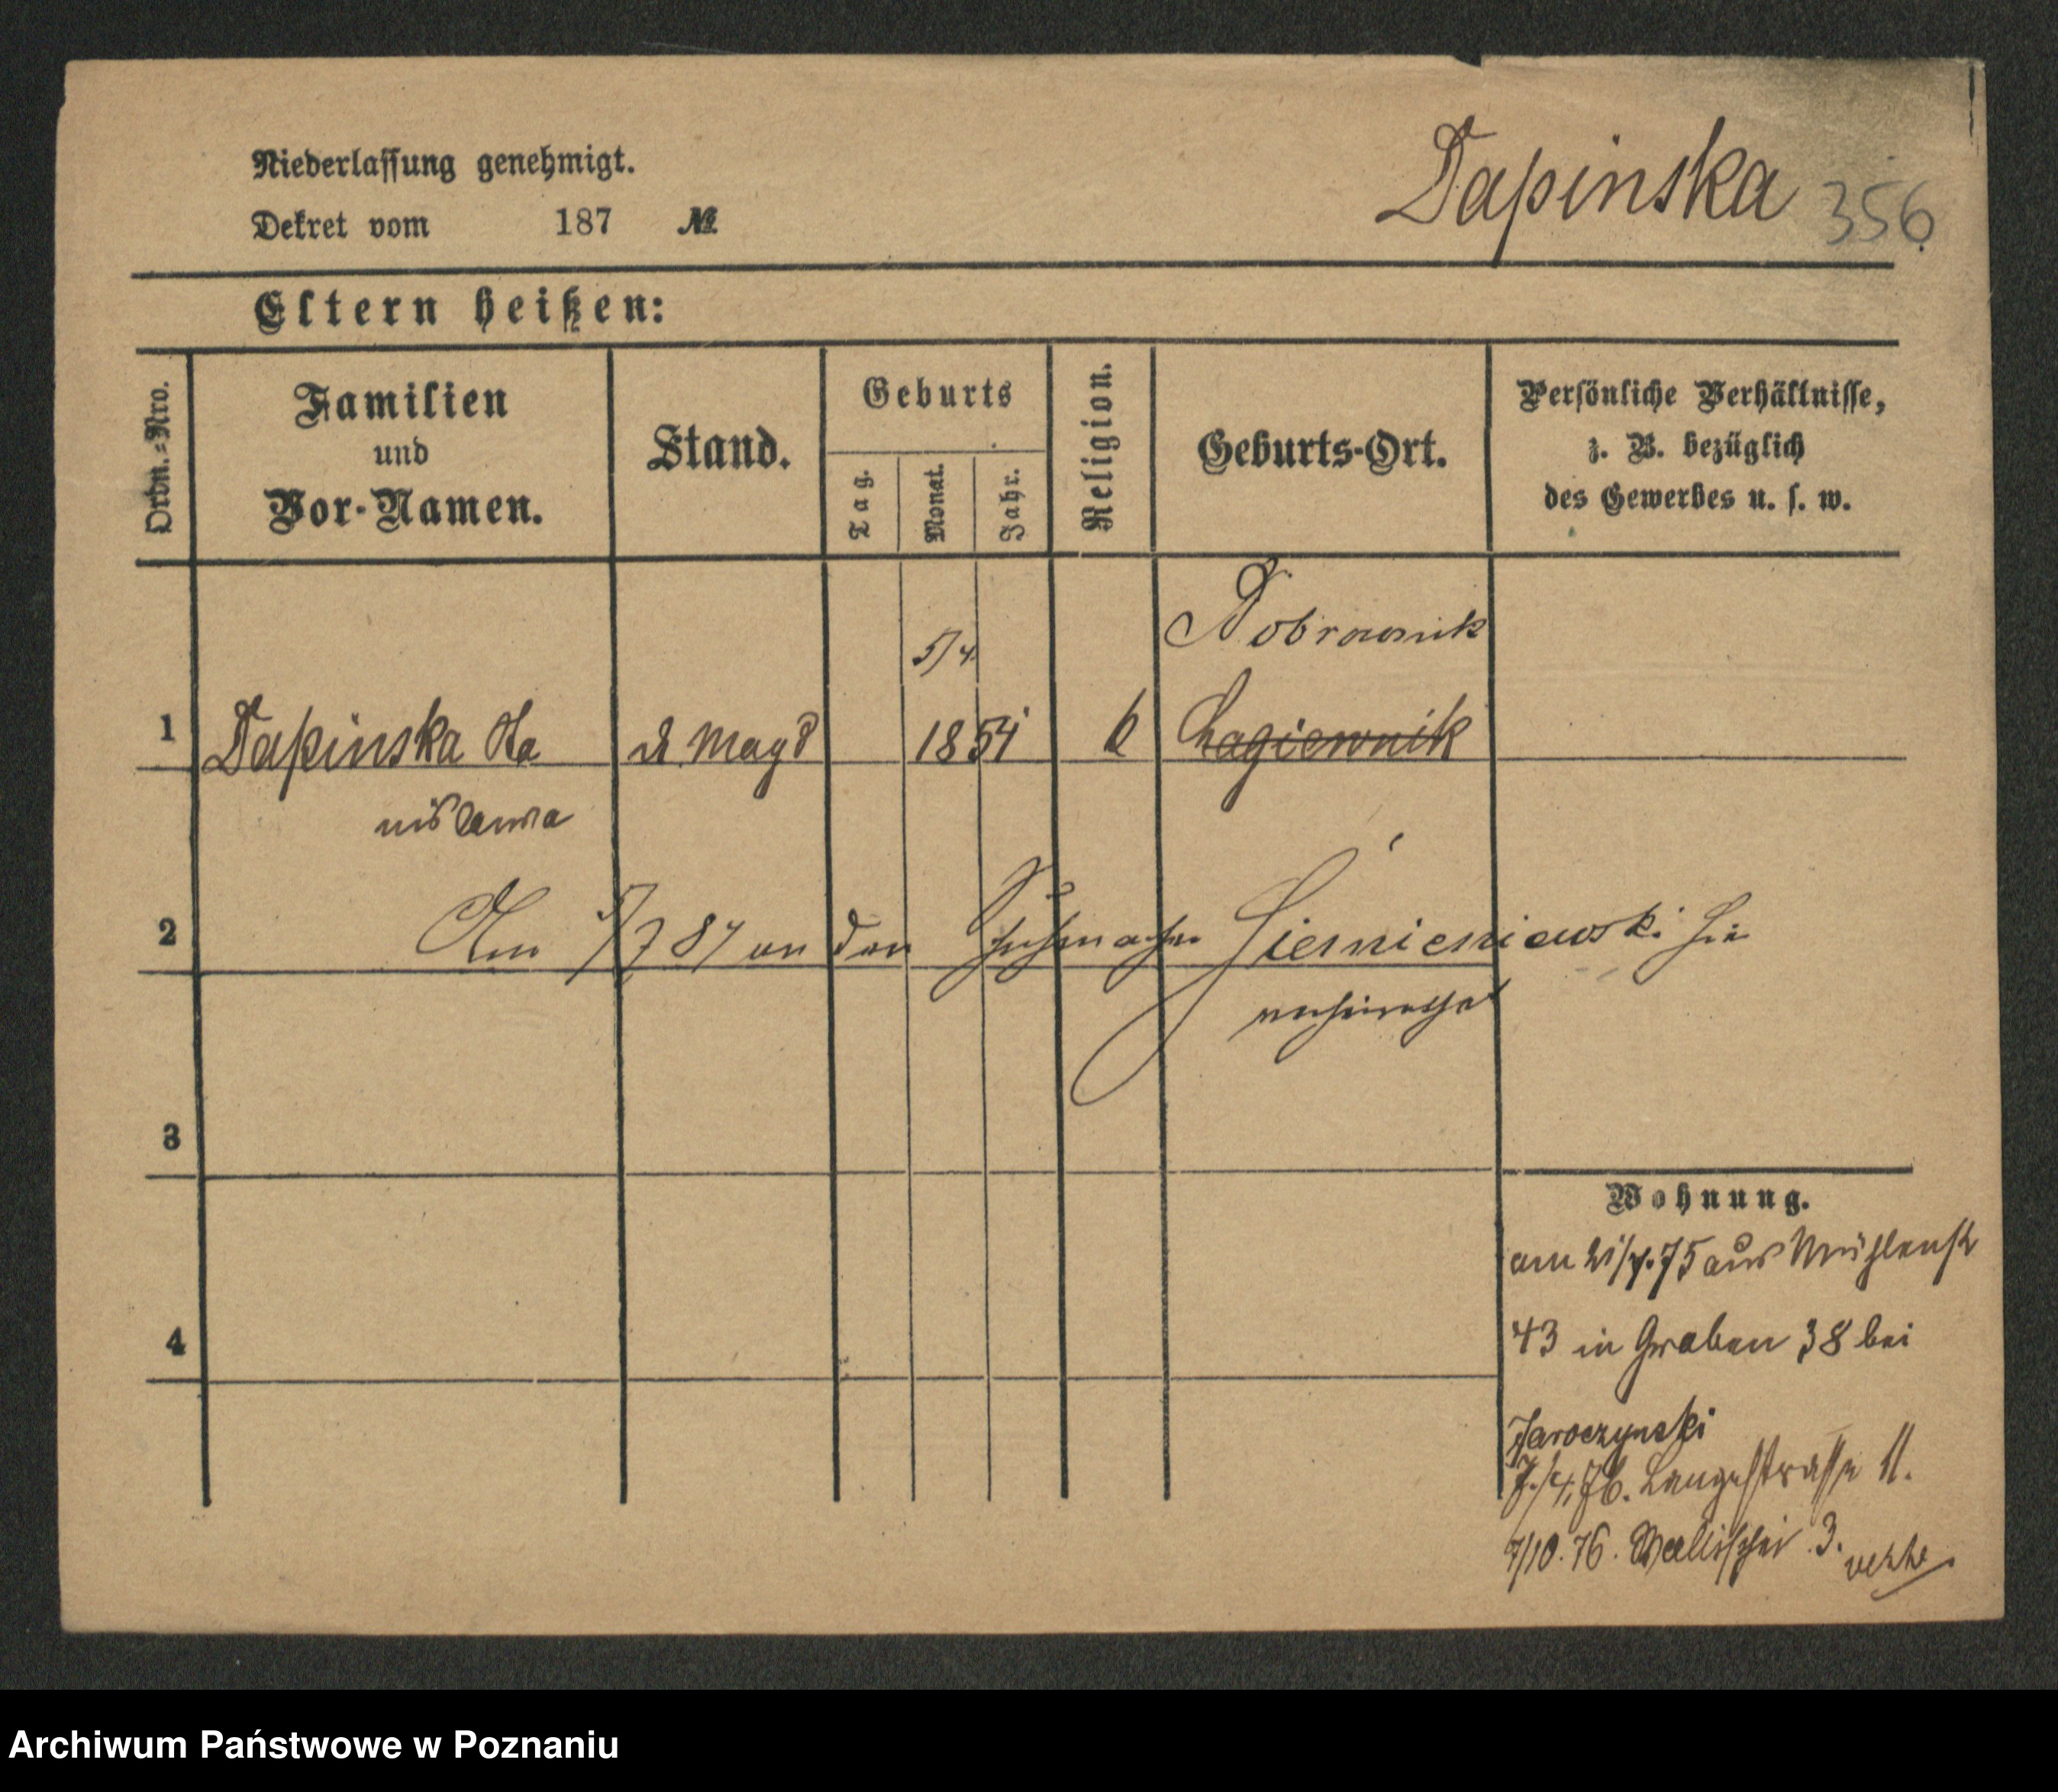 Niederlassung genehmigt.
Dekret vom 187 №
Dapinska 356
Eltern heißen:
Ordn.=Nro.
Familien
und
Vor-Namen.
Stand.
Geburts
Tag.
Monat.
Jahr.
Religion.
Geburts-Ort.
Persönliche Verhältnisse,
z. B. bezüglich
des Gewerbes u. s. w.
Dobrownik
5/4
1 Dapinska Sta d Magd 1854 k Lagiewnik
nislawa
2 Am 5/7 87 an den Schuhmacher Siemieniewski hie
verheirathet
3
4
Wohnung.
am 21/7.75 aus Mühlenstr
43 in Graben 38 bei
Jaroczynski
7./4.76. Langestrasse 11.
7/10.76. Wallischei 3.
Archiwum Państwowe w Poznaniu